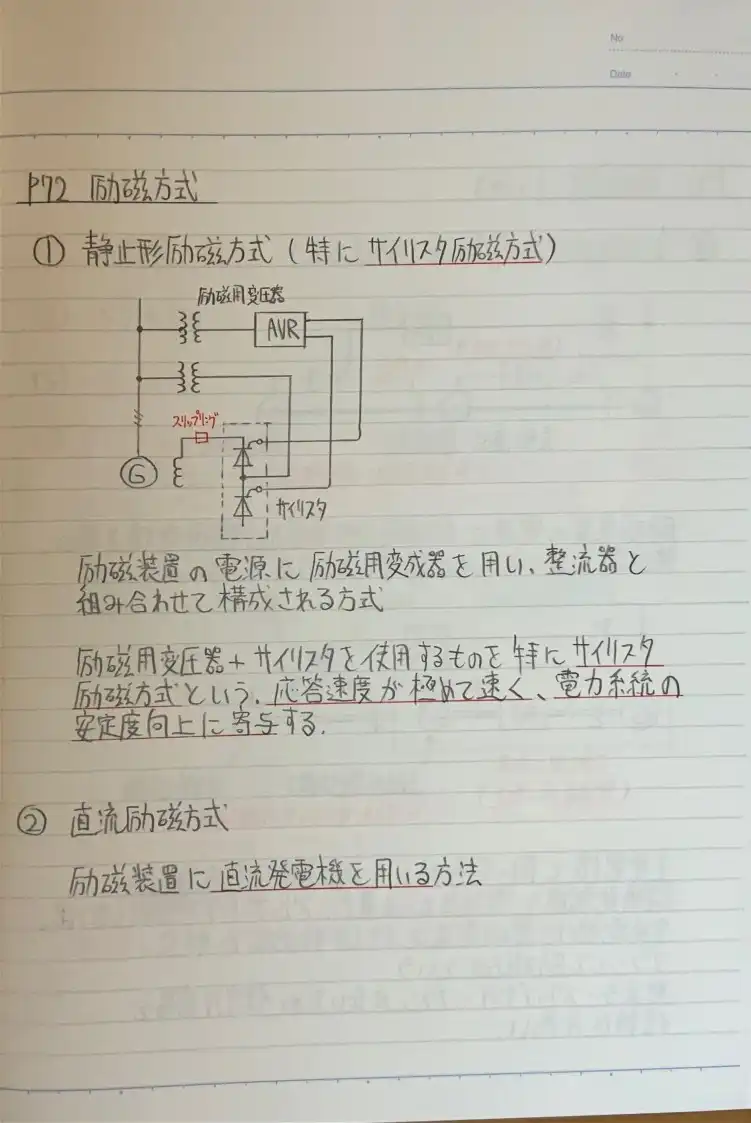 No
Date
P72 励磁方式
① 静止形励磁方式（特に サイリスタ励磁方式）
励磁用変圧器
AVR
スリップリング
G
サイリスタ
励磁装置の電源に励磁用変成器を用い、整流器と
組み合わせて構成される方式
励磁用変圧器＋サイリスタを使用するものを特にサイリスタ
励磁方式という。応答速度が極めて速く、電力系統の
安定度向上に寄与する。
② 直流励磁方式
励磁装置に直流発電機を用いる方法